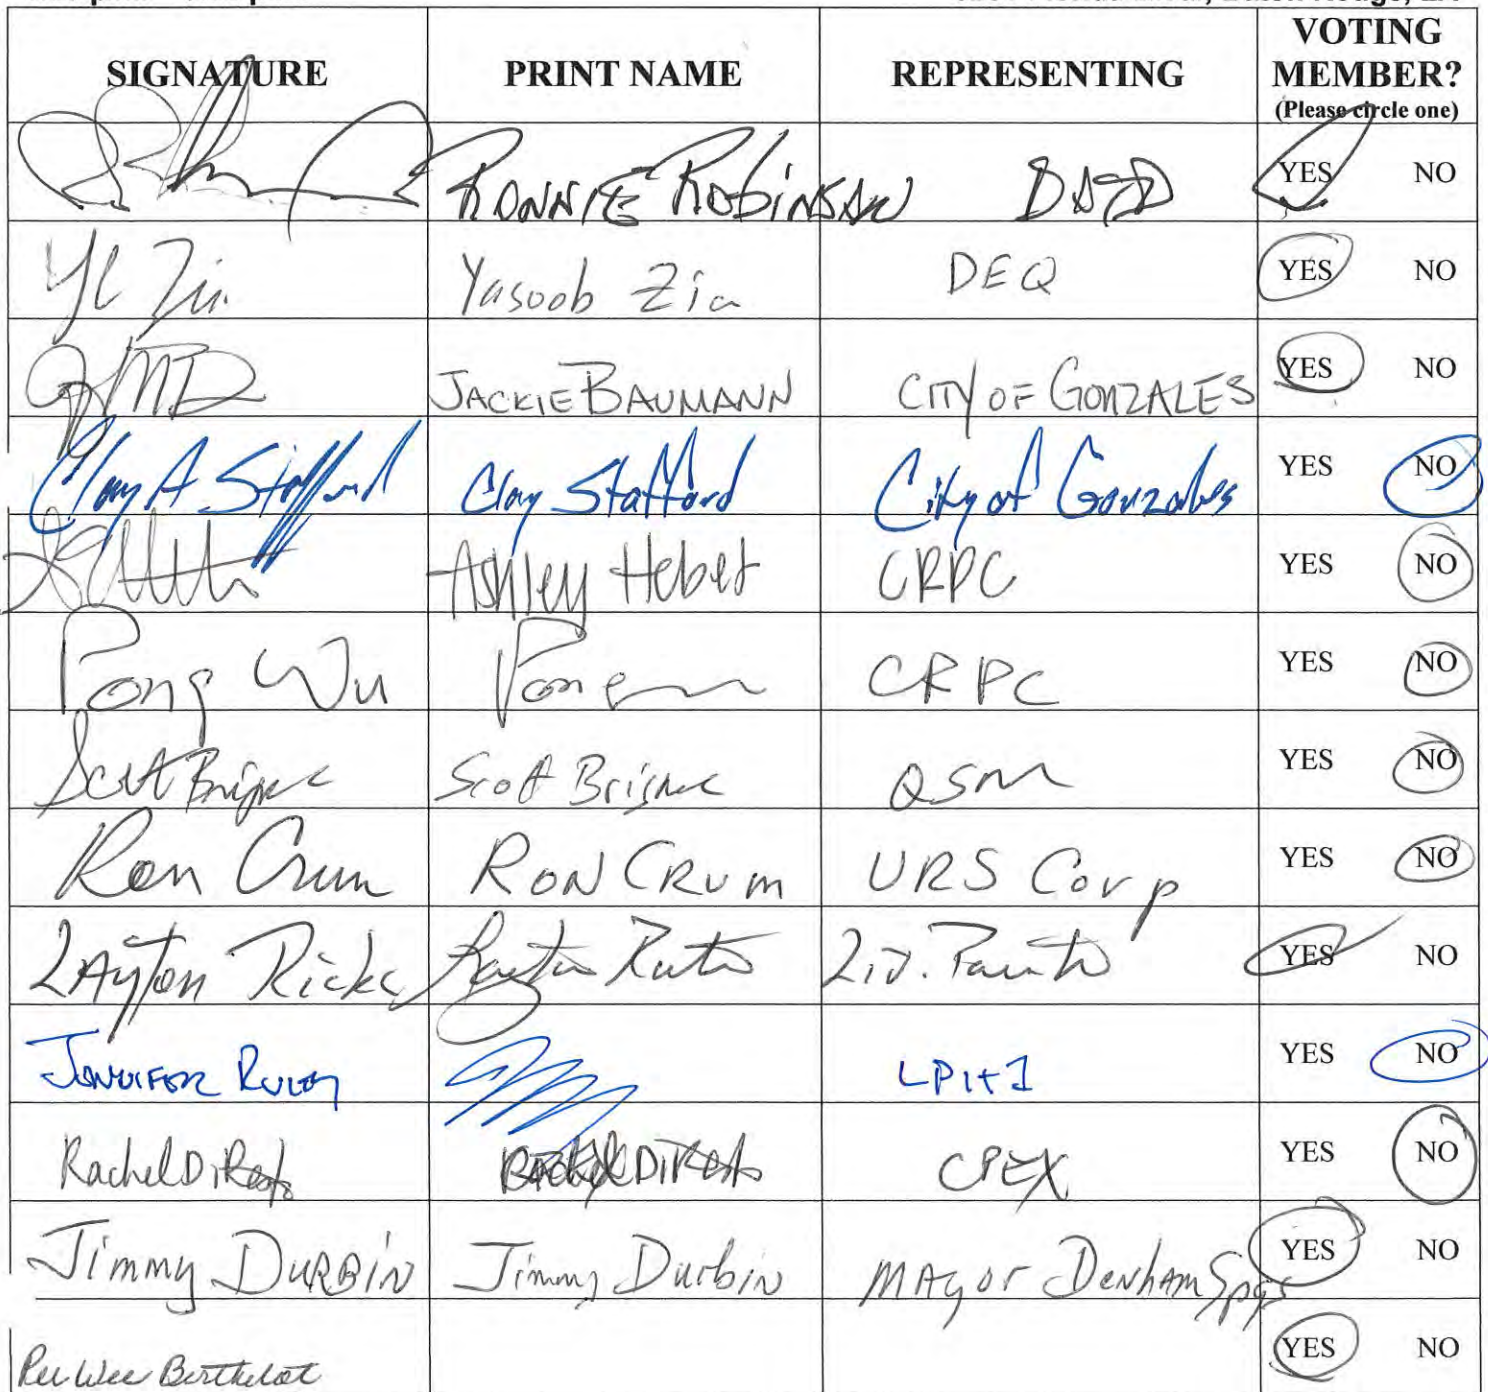 SIGNATURE PRINT NAME REPRESENTING VOTING MEMBER? (Please circle one)
RONNIE RObiNSON YES NO
Yasoob Zia DEQ YES NO
JACKIE BAUMANN CITY OF GONZALES YES NO
Clay A Stafford Clay Stafford City of Gonzales YES NO
Ashley Hebert CRPC YES NO
Pong Wu CRPC YES NO
Scott Scott QSM YES NO
Ron Crum RON CRUM URS Corp YES NO
LAyton Ricks Liv. YES NO
JENNIFER RULEY YES NO
Rachel DiResto Rachel DiResto CPEX YES NO
Jimmy DURBIN Jimmy Durbin MAyor DenhAm Spgs YES NO
Pee Wee Berthelot YES NO